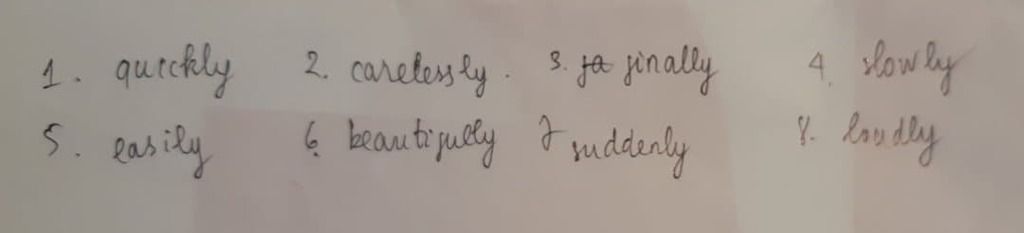 1. quickly 2. carelessly. 3. fa finally 4. slowly
5. easily 6. beautifully 7 suddenly 8. loudly